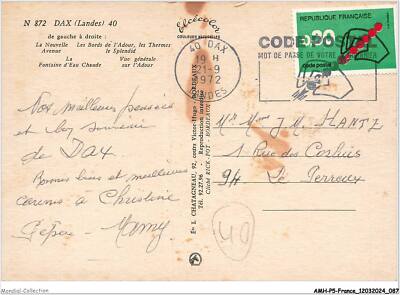 N 872 DAX (Landes) 40
de gauche à droite :
La Nouvelle Les Bords de l'Adour, les Thermes
Avenue le Splendid
La Vue générale
Fontaine d'Eau Chaude sur l'Adour
Nos meilleures pensées
et bon souvenir
de DAX
Bonnes bises et meilleures
caresses à Christine
Pépère - Mamy
Elcécolor
COULEURS NATURELLES
Éts L. CHATAGNEAU, 92, centre Victor-Hugo - BORDEAUX
Tél. 92.27.96 Reproductions interdites
Cliché RICK. POT - BORDEAUX
40 DAX
19 H
21-9
1972
LANDES
CODE POSTAL
MOT DE PASSE DE VOTRE
REPUBLIQUE FRANÇAISE
0,30
code postal
Mr Mme J M. HANTZ
1 Rue des
94 Le Perreux
40
Mondial-Collection
AMH-P5-France_12032024_087